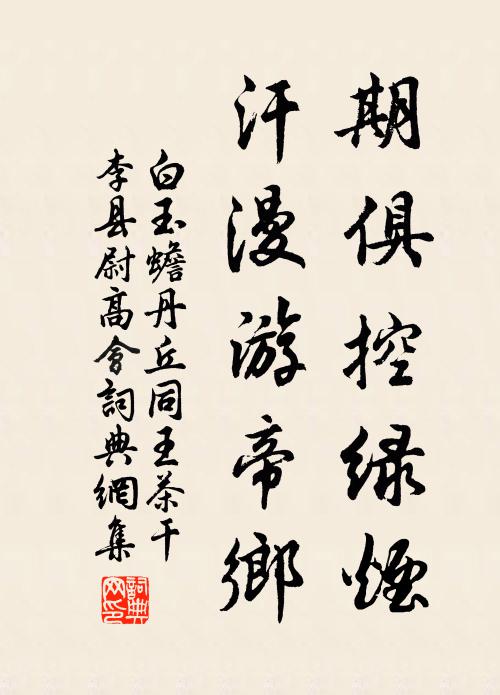 期俱控緑煙
汗漫游帝鄉
白玉蟾丹丘同王茶干
李县尉高會詞典網集
詞典网印